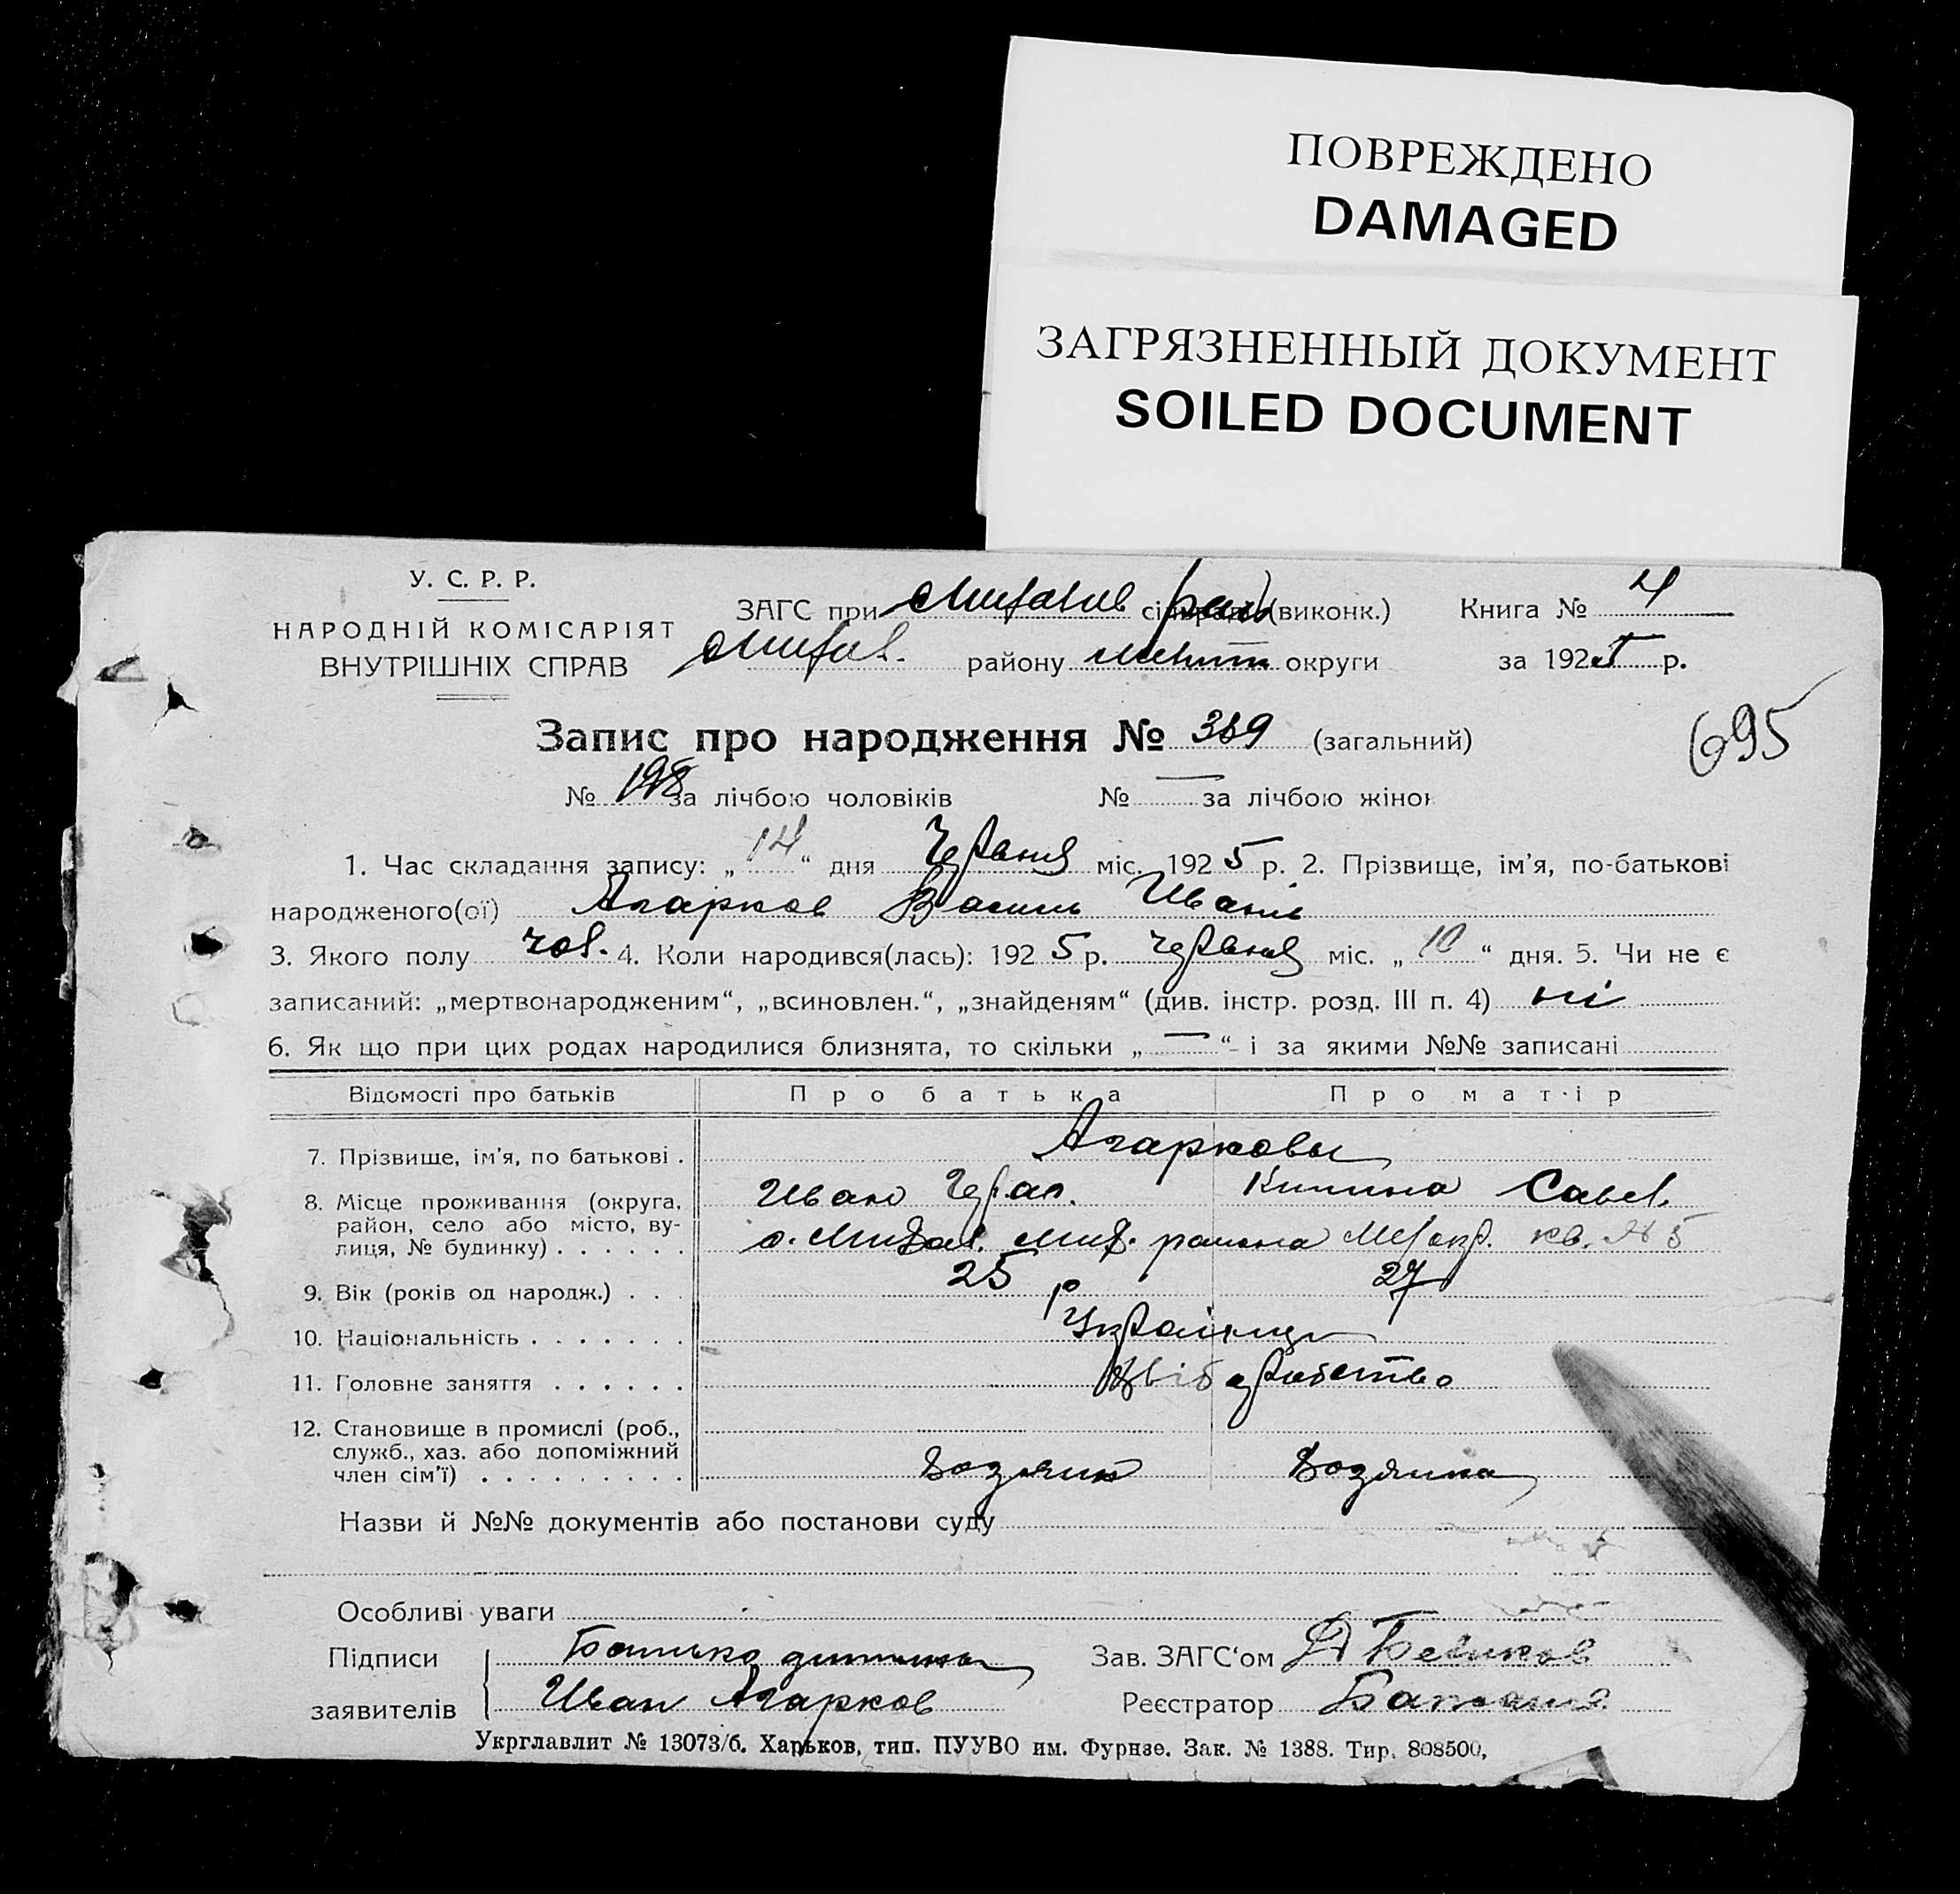 ПОВРЕЖДЕНО
DAMAGED
ЗАГРЯЗНЕННЫЙ ДОКУМЕНТ
SOILED DOCUMENT
У. С. Р. Р.
НАРОДНІЙ КОМІСАРІЯТ
ВНУТРІШНІХ СПРАВ
ЗАГС при (виконк.) Книга № 4
району округи за 1925 р.
Запис про народження № 389 (загальний)
695
№ 198 за лічбою чоловіків № — за лічбою жінок
1. Час складання запису: „14“ дня Червня міс. 1925 р. 2. Прізвище, ім'я, по-батькові
народженого(ої) Агарков Василь Иванів
3. Якого полу чов. 4. Коли народився(лась): 1925 р. червня міс. „10“ дня. 5. Чи не є
записаний: „мертвонародженим“, „всиновлен.“, „знайденям“ (див. інстр. розд. III п. 4) ні
6. Як що при цих родах народилися близнята, то скільки „—“ і за якими №№ записані
Відомості про батьків Про батька Про матір
7. Прізвище, ім'я, по батькові . Агарковы
8. Місце проживання (округа, район, село або місто, вулиця, № будинку) . . . . . .
Иван
района кв. № 5
9. Вік (років од народж.) . . . 25 р 27
10. Національність . . . . . . . Українци
11. Головне заняття . . . . . .
12. Становище в промислі (роб., служб., хаз. або допоміжний член сім'ї) . . . . . . . . .
Хозяин Хозяйка
Назви й №№ документів або постанови суду
Особливі уваги
Підписи Батько дитини Зав. ЗАГС'ом
заявителів Иван Агарков Реєстратор
Укрглавлит № 13073/б. Харьков, тип. ПУУВО им. Фурнзе. Зак. № 1388. Тир. 808500,